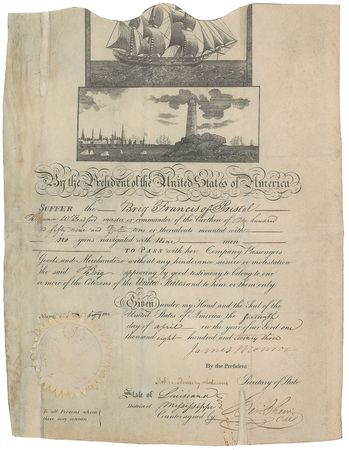 By the President of the United States of America
SUFFER the Brig Francis of Bristol
master or commander of the burthen of
fifty nine and tons or thereabouts mounted with
no guns navigated with Nine men
TO PASS with her Company Passengers
Goods and Merchandize without any hinderance seisure or molestation
the said Brig appearing by good testimony to belong to one
or more of the Citizens of the United States and to him or them only.
Given under my Hand and the Seal of the
United States of America the
day of april in the year of our Lord one
thousand eight hundred and twenty three
James Monroe
By the President
John Quincy Adams Secretary of State
State of Louisiana
District of Mississippi
Countersigned by
To all Persons whom
these may concern